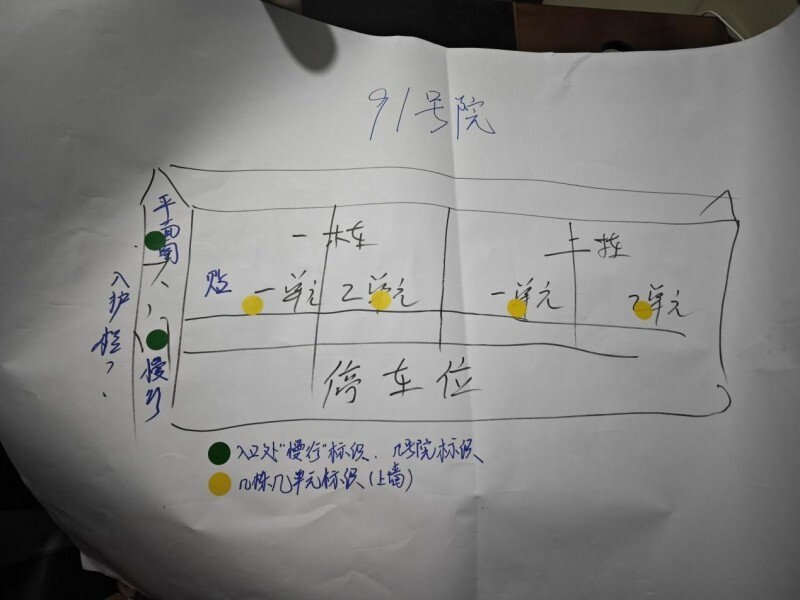 91号院
平面图
一栋
二栋
贴
一单元
2单元
一单元
2单元
入口
护栏
慢行
停车位
入口处"慢行"标识、几号院标识
几栋几单元标识(上墙)